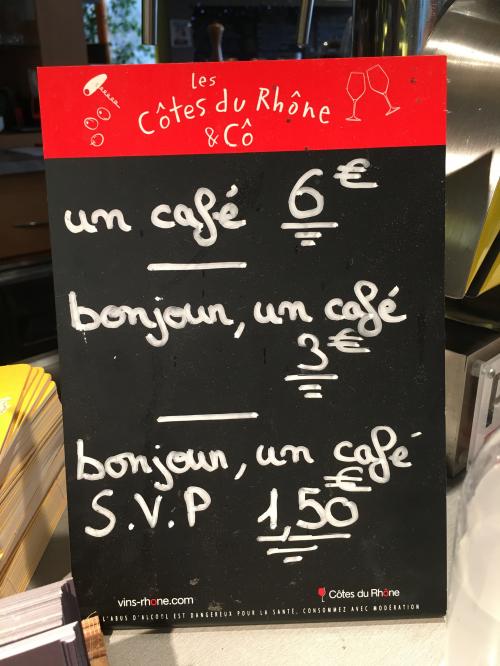 les
Côtes du Rhône
& Cô
un café 6€
bonjour, un café
3€
bonjour, un café
S.V.P 1,50€
vins-rhone.com
Côtes du Rhône
L'ABUS D'ALCOOL EST DANGEREUX POUR LA SANTÉ, CONSOMMEZ AVEC MODÉRATION